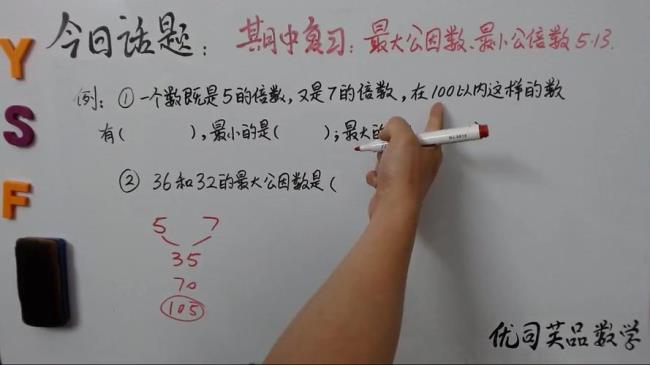 今日话题：其中复习：最大公因数、最小公倍数 5.13.
例：①一个数既是5的倍数，又是7的倍数，在100以内这样的数
有(      )，最小的是(      )；最大的
②36和32的最大公因数是(
5 7
35
70
105
Y
S
F
优司芙品数学